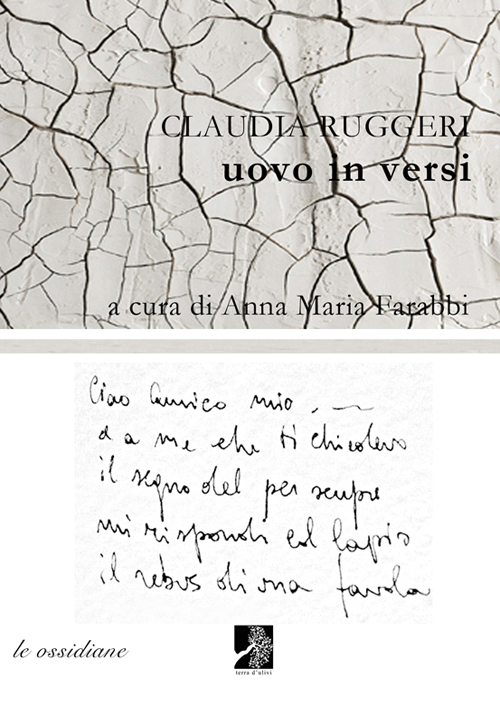 CLAUDIA RUGGERI
uovo in versi
a cura di Anna Maria Farabbi
Ciao Amico mio . —
d a me che ti chiedevo
il segno del per sempre
mi rispondi col lapis
il rebus di una favola
le ossidiane
terra d'ulivi